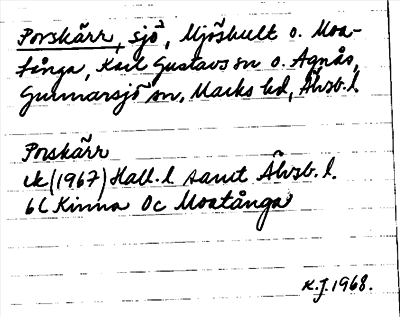 Porskärr, sjö, Mjöshult o. Moa-
tånga, Karl Gustavs sn o. Agnås,
Gunnarsjö sn, Marks hd, Älvsb. l.
Porskärr
ek (1967) Hall. l samt Älvsb. l.
6C Kinna 0c Moatånga
K.J. 1968.